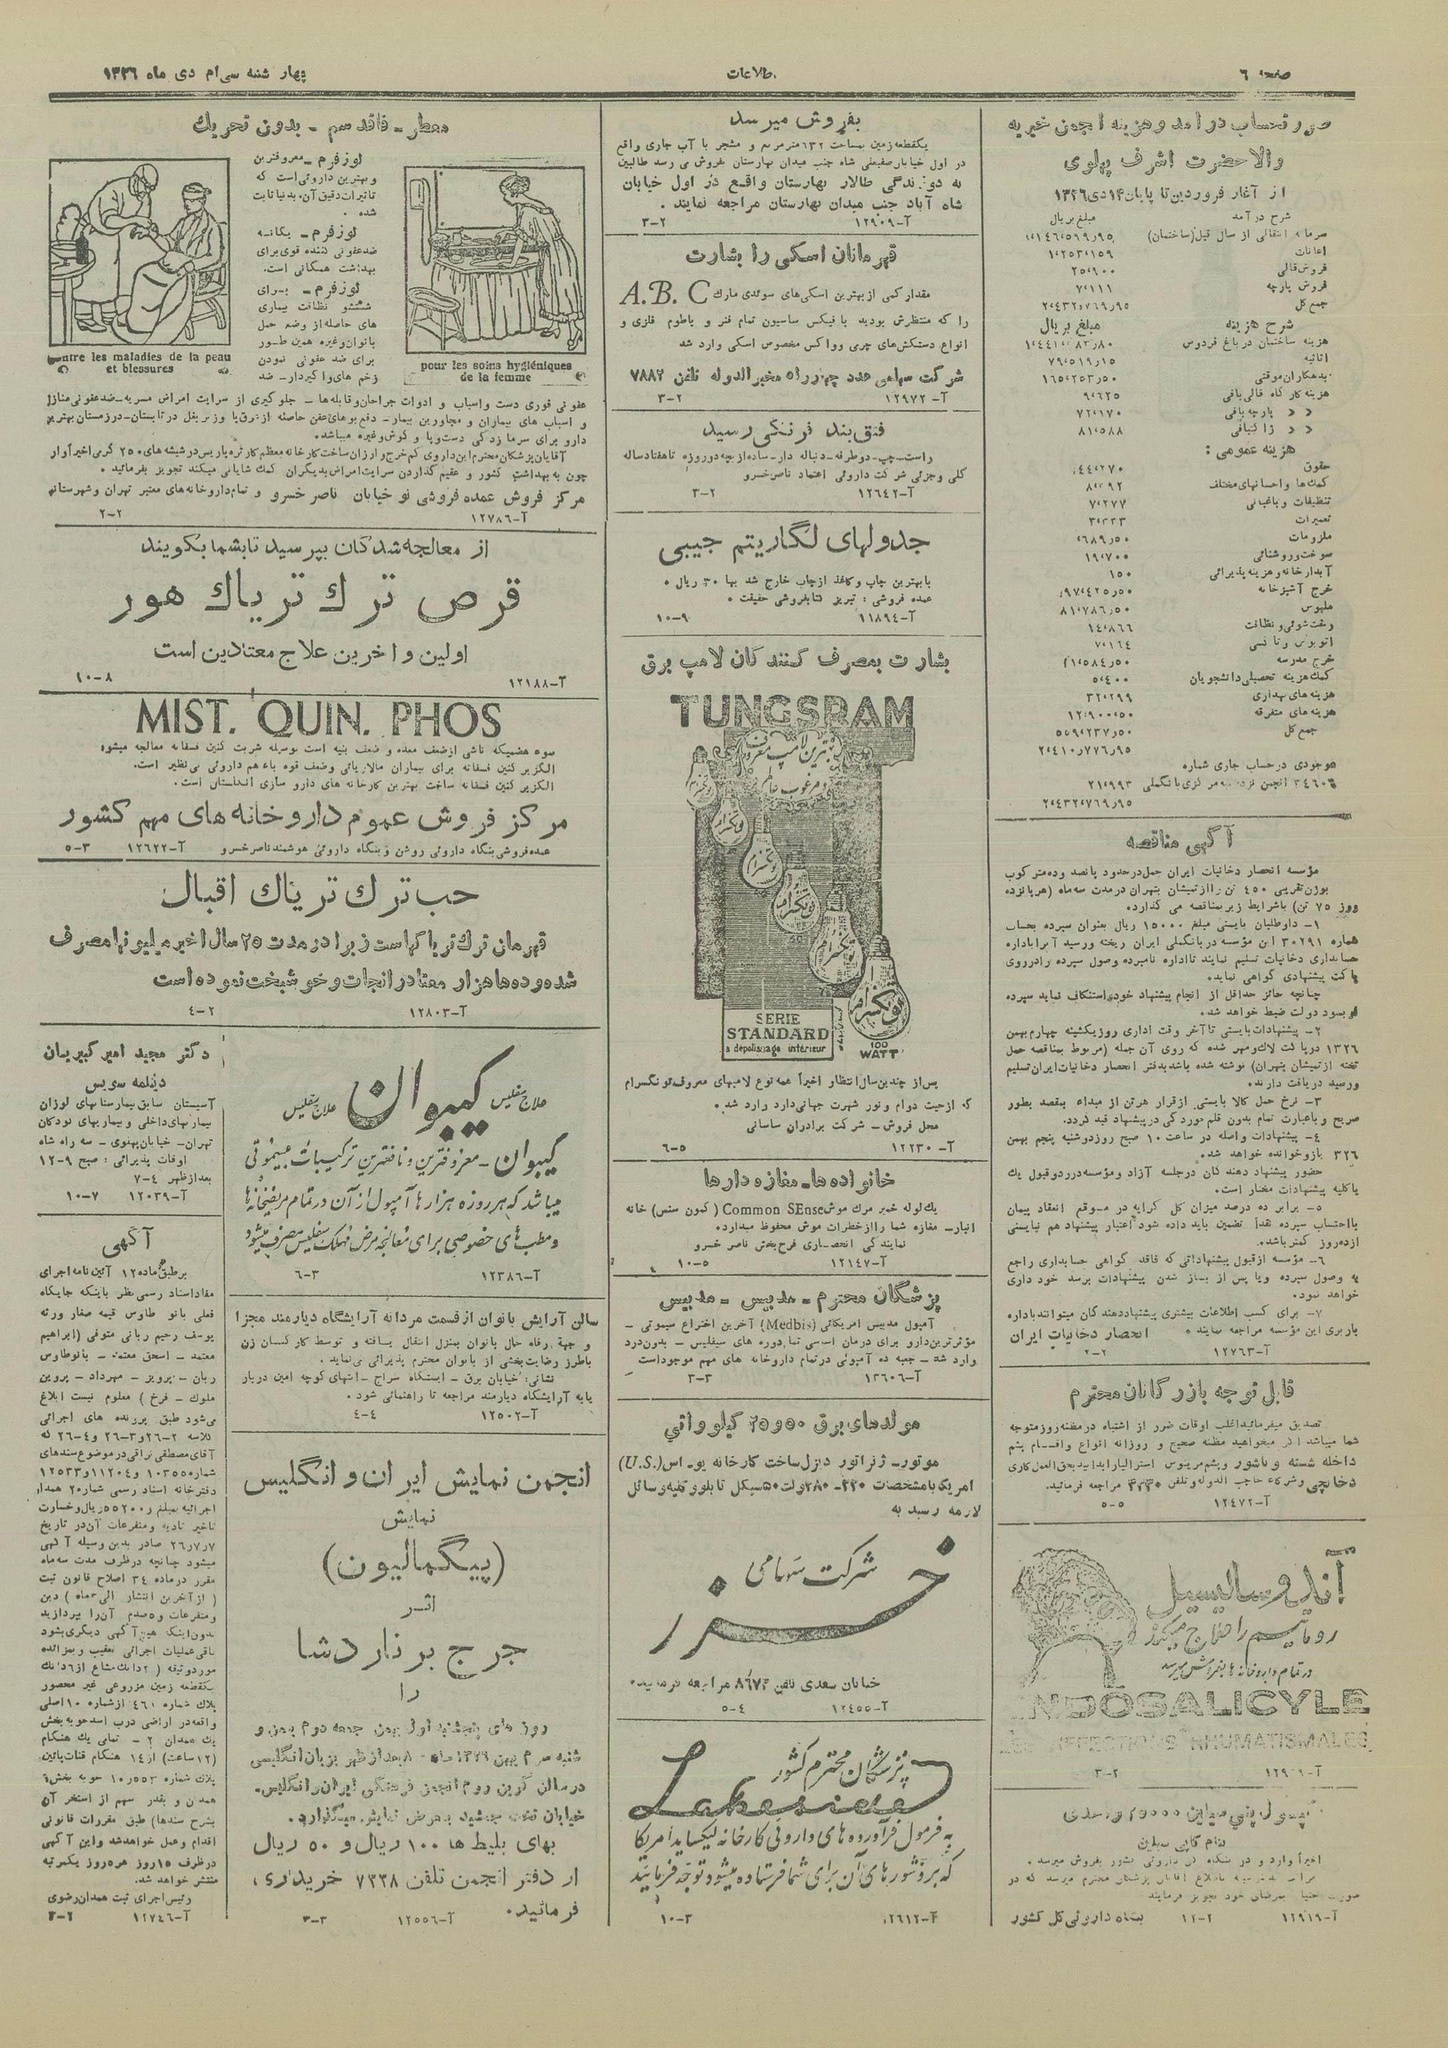 صفحه ٦
اطلاعات
چهارشنبه سی‌ام دی ماه ۱۳۲٦
صورتحساب درآمد و هزینه انجمن خیریه
والاحضرت اشرف پهلوی
از آغاز فروردین تا پایان ۱۴ دی ۱۳۲٦
شرح درآمد مبلغ بریال
سرمایه انتقالی از سال قبل (ساختمان)
اعانات
فروش قالی
فروش پارچه ۷۰۱۱۱
جمع کل ۲۰۴۳۲۰۷٦۹ر۹۵
شرح هزینه مبلغ بریال
هزینه ساختمان در باغ فردوس
اثاثیه ۷۹۵۱۹ر۱۵
بدهکاران موقتی ۱٦۵۰۲۵۳ر۵۰
هزینه کارگاه قالی‌بافی ۹۰٦۲۵
« « پارچه بافی ۷۲۰۱۷۰
« « ژاکتبافی ۸۱۰۵۸۸
هزینه عمومی :
حقوق
کمک‌ها و احسانهای مختلف
تنظیفات و باغبانی ۷۰۲۷۷
تعمیرات
ملزومات
سوخت و روشنائی ۱۹۰۷۰۰
آبدارخانه و هزینه پذیرائی ۱۵۰
خرج آشپزخانه
ملبوس ۸۱۰۷۸٦ر۵۰
رخت‌شوئی و نظافت ۱۴۰۸٦٦
اتوبوس و تاکسی ۷۰۱٦۴
خرج مدرسه
کمک هزینه تحصیلی دانشجویان ۵۰۴۰۰
هزینه های بهداری ۳۲۰۲۹۹
هزینه های متفرقه ۱۲۰۹۰۰ر۵۰
جمع کل ۵۵۹۰۲۳۷ر۵۰
۲۰۴۱۰ر۷۷٦ر۹۵
موجودی در حساب جاری شماره
۳۴٦۰٦ انجمن نزد مرکزی بانک ملی ۲۱۰۹۹۳
۲۰۴۳۲۰۷٦۹ر۹۵
آگهی مناقصه
مؤسسه انحصار دخانیات ایران حمل در حدود پانصد و ده متر کوب
بوزن تقریبی ۴۵۰ تن را از تمیشان بتهران در مدت سه ماه (هر پانزده
روز ۷۵ تن) با شرایط زیر بمناقصه می گذارد.
۱- داوطلبان بایستی مبلغ ۱۵۰۰۰ ریال بعنوان سپرده بحساب
شماره ۳۰۲۹۱ این مؤسسه در بانک ملی ایران ریخته و رسید آنرا باداره
حسابداری دخانیات تسلیم نمایند تا اداره نامبرده وصول سپرده را در روی
پاکت پیشنهادی گواهی نماید.
چنانچه حائز حداقل از انجام پیشنهاد خود استنکاف نماید سپرده
او بسود دولت ضبط خواهد شد.
۲- پیشنهادات بایستی تا آخر وقت اداری روز یکشنبه چهارم بهمن
۱۳۲٦ در پاکت لاک و مهر شده که روی آن جمله (مربوط بمناقصه حمل
تخته از تمیشان بتهران) نوشته شده باشد بدفتر انحصار دخانیات ایران تسلیم
و رسید دریافت دارند.
۳- نرخ حمل کالا بایستی از قرار هر تن از مبداء بمقصد بطور
صریح و با عبارت تمام بدون قلم خوردگی در پیشنهاد قید گردد.
۴- پیشنهادات واصله در ساعت ۱۰ صبح روز دوشنبه پنجم بهمن
۳۲٦ باز و خوانده خواهد شد.
حضور پیشنهاد دهندگان در جلسه آزاد و مؤسسه در رد و قبول یک
یا کلیه پیشنهادات مختار است.
۵- برابر ده درصد میزان کل کرایه در موقع انعقاد پیمان
با احتساب سپرده نقداً تضمین باید داده شود اعتبار پیشنهاد هم نبایستی
از ده روز کمتر باشد.
٦- مؤسسه از قبول پیشنهاداتی که فاقد گواهی حسابداری راجع
به وصول سپرده و یا پس از باز شدن پیشنهادات برسد خود داری
خواهد نمود.
۷- برای کسب اطلاعات بیشتری پیشنهاددهندگان میتوانند باداره
باربری این مؤسسه مراجعه نمایند • انحصار دخانیات ایران
آ-۱۲۷٦۳ ۲-۲
قابل توجه بازرگانان محترم
تصدیق میفرمائید اغلب اوقات ضرر از اشتباه در مظنه روز متوجه
شما میباشد اگر میخواهید مظنه صحیح و روزانه انواع و اقسام پشم
داخله شسته و ناشور و پشم مرینوس استرالیا را بدانید بحق العمل کاری
دخانچی و شرکاء حاجب الدوله و تلفن ۴۳۳۰ مراجعه فرمائید.
آ-۱۲۴۷۲ ۵-۵
آندوسالیسیل
روماتیسم را علاج میکند
در تمام داروخانه ها بفروش میرسد
ENDOSALICYLE
AFFECTIONS RHUMATISMALES
۳-۲
کپسول پنی سیلین ۲۵۰۰۰ واحدی
بنگاه داروئی کل کشور
۱۲-۲ آ-۱۲۹۱۹
بفروش میرسد
یکقطعه زمین بمساحت ٦۳۲ متر مربع و مشجر با آب جاری واقع
در اول خیابان صفیعلی شاه جنب میدان بهارستان بفروش می رسد طالبین
به دوزندگی طالار بهارستان واقع در اول خیابان
شاه آباد جنب میدان بهارستان مراجعه نمایند .
آ-۱۲۹۰۹ ۳-۲
قهرمانان اسکی را بشارت
مقدار کمی از بهترین اسکی‌های سوئدی مارک A.B.C
را که منتظرش بودید با فیکس ساسیون تمام فنر و باطوم فلزی و
انواع دستکش‌های چرمی و واکس مخصوص اسکی وارد شد
شرکت سهامی عدد چهارراه مخبرالدوله تلفن ۷۸۸۲
آ-۱۲۹۷۲ ۳-۲
فتق بند فرنگی رسید
راست-چپ-دوطرفه-دنباله دار-ساده از بچه دوروزه تا هفتاد ساله
کلی و جزئی شرکت داروئی اعتماد ناصرخسرو
آ-۱۲٦۴۲ ۳-۲
جدولهای لگاریتم جیبی
با بهترین چاپ و کاغذ از چاپ خارج شد بها ۳۰ ریال •
عمده فروشی : تبریز کتابفروشی حقیقت •
آ-۱۱۸۹۴ ۱۰-۹
بشارت بمصرف کنندگان لامپ برق
TUNGSRAM
بهترین لامپ معروف
و مرغوب عالم
تونگسرام
تونگسرام
تونگسرام
تونگسرام
تونگسرام
تونگسرام
SERIE
STANDARD
a dépolissage intérieur
100
WATT
پس از چندین سال انتظار اخیراً همه نوع لامپهای معروف تونگسرام
که از حیث دوام و نور شهرت جهانی دارد وارد شد.
محل فروش - شرکت برادران ساسانی
آ-۱۲۲۳۰ ٦-۵
خانواده‌ها-مغازه‌دارها
یک لوله خمیر مرگ موش Common SEnse (کمون سنس) خانه
انبار- مغازه شما را از خطرات موش محفوظ میدارد.
نمایندگی انحصاری فرحبخش ناصر خسرو
آ-۱۲۱۴۷ ۱۰-۵
پزشگان محترم- مدبیس - مدبیس
آمپول مدبیس امریکائی (Medbis) آخرین اختراع بیسموتی -
مؤثرترین دارو برای درمان اساسی تمام دوره های سیفلیس - بدون درد
وارد شد - جعبه ده آمپولی در تمام داروخانه های مهم موجود است
آ-۱۲٦۰٦ ۳-۳
مولدهای برق ۵۰ و ۲۵ کیلو واتی
موتور- ژنراتور دیزل ساخت کارخانه یو- اس (U.S.)
امریکا با مشخصات ۲۲۰-۳۸۰ ولت ۵۰ سیکل با تابلو و کلیه وسائل
لازمه رسید به
شرکت سهامی
خزر
خیابان سعدی تلفن ۸٦۷۳ مراجعه فرمائید•
آ-۱۲۴۵۵ ۵-۴
پزشگان محترم کشور
Lakeside
به فرمول فرآورده های داروئی کارخانه لیکساید امریکا
که بروشورهای آن برای شما فرستاده میشود توجه فرمائید
آ-۱۲٦۱۲ ۱۰-۳
معطر- فاقد سم - بدون تحریک
لوزفرم - معروفترین
و بهترین داروئی است که
تاثیرات دقیق آن بدنیا ثابت
شده .
لوزفرم- یگانه
ضدعفونی کننده قوی برای
بهداشت همگانی است.
لوزفرم- برای
شستشو نظافت بیماری
های حاصله از وضع حمل
بانوان و غیره همین طور
برای ضد عفونی نمودن
زخم های واگیردار- ضد
contre les maladies de la peau
et blessures
pour les soins hygiéniques
de la femme
عفونی فوری دست و اسباب و ادوات جراحان و قابله‌ها - جلوگیری از سرایت امراض مسریه- ضدعفونی منازل
و اسباب های بیماران و مجاورین بیمار- دفع بوهای عفن حاصله از عرق پا و زیر بغل در تابستان- در زمستان بهترین
دارو برای سرما زدگی دست و پا و گوش و غیره میباشد.
آقایان پزشکان محترم این داروی کم خرج و ارزان ساخت کارخانه معظم کارتره پاریس در شیشه های ۲۵۰ گرمی اخیراً وارد
چون به بهداشت کشور و عقیم گذاردن سرایت امراض بدیگران کمک شایانی میکند تجویز بفرمائید •
مرکز فروش عمده فروشی نو خیابان ناصر خسرو و تمام داروخانه های معتبر تهران و شهرستانها
آ-۱۲۷۸٦ ۲-۲
از معالجه شدگان بپرسید تا بشما بگویند
قرص ترک تریاک هور
اولین و آخرین علاج معتادین است
آ-۱۲۱۸۸ ۱۰-۸
MIST. QUIN. PHOS
سوء هضمیکه ناشی از ضعف معده و ضعف بنیه است بوسیله شربت کنین فسفاته معالجه میشود
الگزیر کنین فسفاته برای بیماران مالاریائی وضعف قوه باء هم داروئی بی‌نظیر است.
الگزیر کنین فسفاته ساخت بهترین کارخانه های دارو سازی انگلستان است.
مرکز فروش عموم داروخانه های مهم کشور
عمده فروشی بنگاه داروئی روشن و بنگاه داروئی هوشمند ناصر خسرو آ-۱۲٦۲۲ ۵-۳
حب ترک تریاک اقبال
قهرمان ترک تریاکهاست زیرا در مدت ۲۵ سال اخیر میلیونها مصرف
شده و ده ها هزار معتاد را نجات و خوشبخت نموده است
آ-۱۲۸۰۳ ۴-۲
علاج سفلیس کیبوان علاج سفلیس
کیبوان- معروفترین و نافعترین ترکیبات بیسموتی
میباشد که هر روزه هزارها آمپول از آن در تمام مریضخانه‌ها
و مطب های خصوصی برای معالجه مرض مهلک سفلیس مصرف میشود
آ-۱۲۳۸٦ ٦-۳
سالن آرایش بانوان از قسمت مردانه آرایشگاه دیارمند مجزا
و جهة رفاه حال بانوان بمنزل انتقال یافته و توسط کارکنان زن
باطرز رضایت بخشی از بانوان محترم پذیرائی می‌نماید .
نشانی: خیابان برق - ایستگاه سراج - انتهای کوچه امین دربار
بایه آرایشگاه دیارمند مراجعه تا راهنمائی شود .
آ-۱۲۵۰۲ ۴-۴
انجمن نمایش ایران و انگلیس
نمایش
(پیگمالیون)
اثر
جرج برناردشا
را
روز های پنجشنبه اول بهمن جمعه دوم بهمن و
در سالن گرین روم انجمن فرهنگی ایران و انگلیس.
خیابان تخت جمشید بمعرض نمایش میگذارد.
بهای بلیط ها ۱۰۰ ریال و ۵۰ ریال
از دفتر انجمن تلفن ۷۳۳۸ خریداری
فرمائید.
آ-۱۲۵۵٦ ۳-۳
دکتر مجید امیر کبیریان
دیپلمه سویس
آسیستان سابق بیمارستانهای لوزان
بیماریهای داخلی و بیماریهای کودکان
تهران- خیابان پهلوی - سه راه شاه
اوقات پذیرائی: صبح ۹-۱۲
بعد از ظهر ۴-۷
آ-۱۲۰۳۹ ۱۰-۷
آگهی
برطبق ماده ۱۲ آئین نامه اجرای
مفاد اسناد رسمی نظر باینکه جایگاه
فعلی بانو طاوس قیمه صغار ورثه
یوسف رحیم ربانی متوفی (ابراهیم
معتمد - اسحق معتمد - بانو طاوس
ربان - پرویز - مهرداد - پروین
ملوک - فرخ ) معلوم نیست ابلاغ
می‌شود طبق پرونده های اجرائی
کلاسه ۲-۲٦ و ۳-۲٦ و ۴-۲٦ که
آقای مصطفی نراقی در موضوع سندهای
شماره ۱۰۳۵۵ و ۱۱۲۰۴ و ۱۲۵۳۳
دفترخانه اسناد رسمی شماره ۲ همدان
تاخیر تادیه و متفرعات آن در تاریخ
۷ر۷ر۲٦ صادر بدین وسیله آگهی
میشود چنانچه در ظرف مدت سه ماه
مقرر در ماده ۳۴ اصلاح قانون ثبت
بدون اینکه هیچ آگهی دیگری بشود
یکقطعه زمین مزروعی غیر محصور
پلاک شماره ۴٦۱ از شماره ۱۰ اصلی
واقعه در اراضی درب اسد حومه بخش
یک همدان ۲ - تمامی یک هنگام
(۱۲ ساعت) از ۱۴ هنگام قنات پائین
همدان و بقدر سهم از استخر آن
بشرح سندها) طبق مقررات قانونی
اقدام و عمل خواهد شد و این آگهی
در ظرف ۱۵ روز هر ده روز یکمرتبه
منتشر خواهد شد.
رئیس اجرای ثبت همدان رضوی
آ-۱۲۷۴٦ ۳-۲